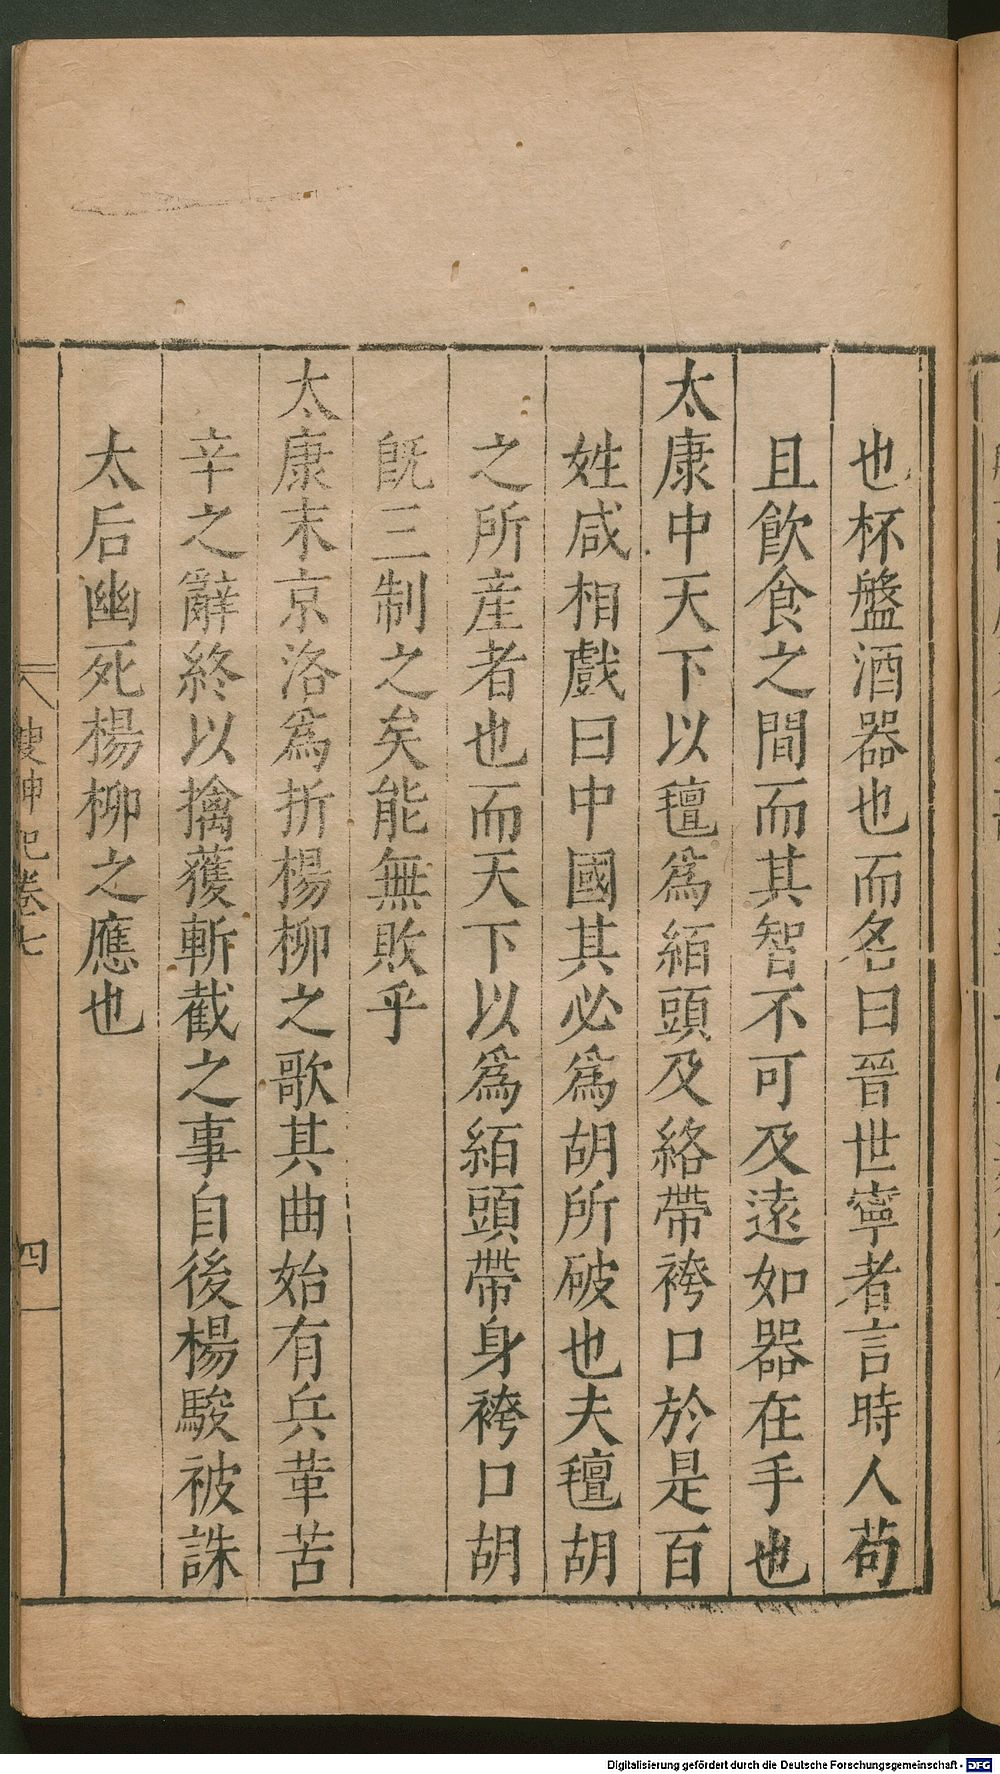 也杯盤酒器也而名曰晉世寧者言時人苟
且飲食之間而其智不可及遠如器在手也
太康中天下以氊爲絔頭及絡帶袴口於是百
姓咸相戲曰中國其必爲胡所破也夫氊胡
之所産者也而天下以爲絔頭帶身袴口胡
旣三制之矣能無敗乎
太康末京洛爲折楊柳之歌其曲始有兵革苦
辛之辭終以擒獲斬截之事自後楊駿被誅
太后幽死楊柳之應也
搜神記卷七
四
Digitalisierung gefördert durch die Deutsche Forschungsgemeinschaft - DFG